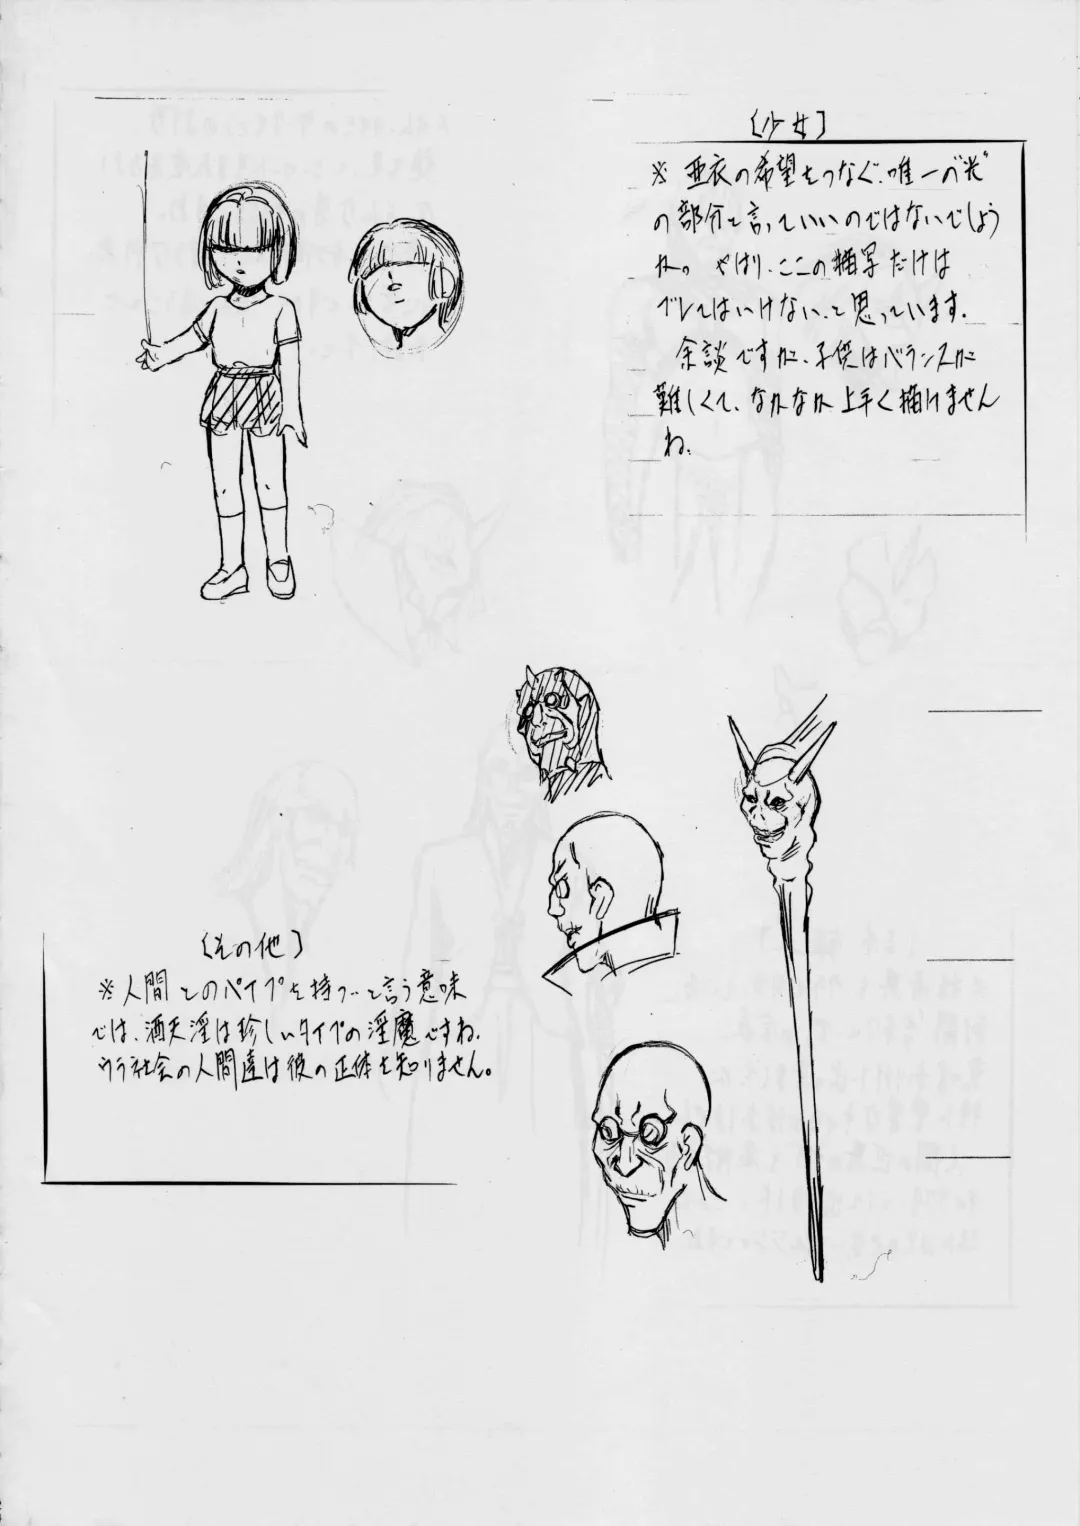 〔少女〕
※ 亜衣の希望をつなぐ、唯一の"光"
の部分と言っていいのではないでしょう
ね。やはり、ここの描写だけは
ブレてはいけない、と思っています。
余談ですが、子供はバランスが
難しくて、なかなか上手く描けません
ね。
〔その他〕
※人間とのパイプを持つ…と言う意味
では、酒天淫は珍しいタイプの淫魔ですね。
ウラ社会の人間達は彼の正体を知りません。